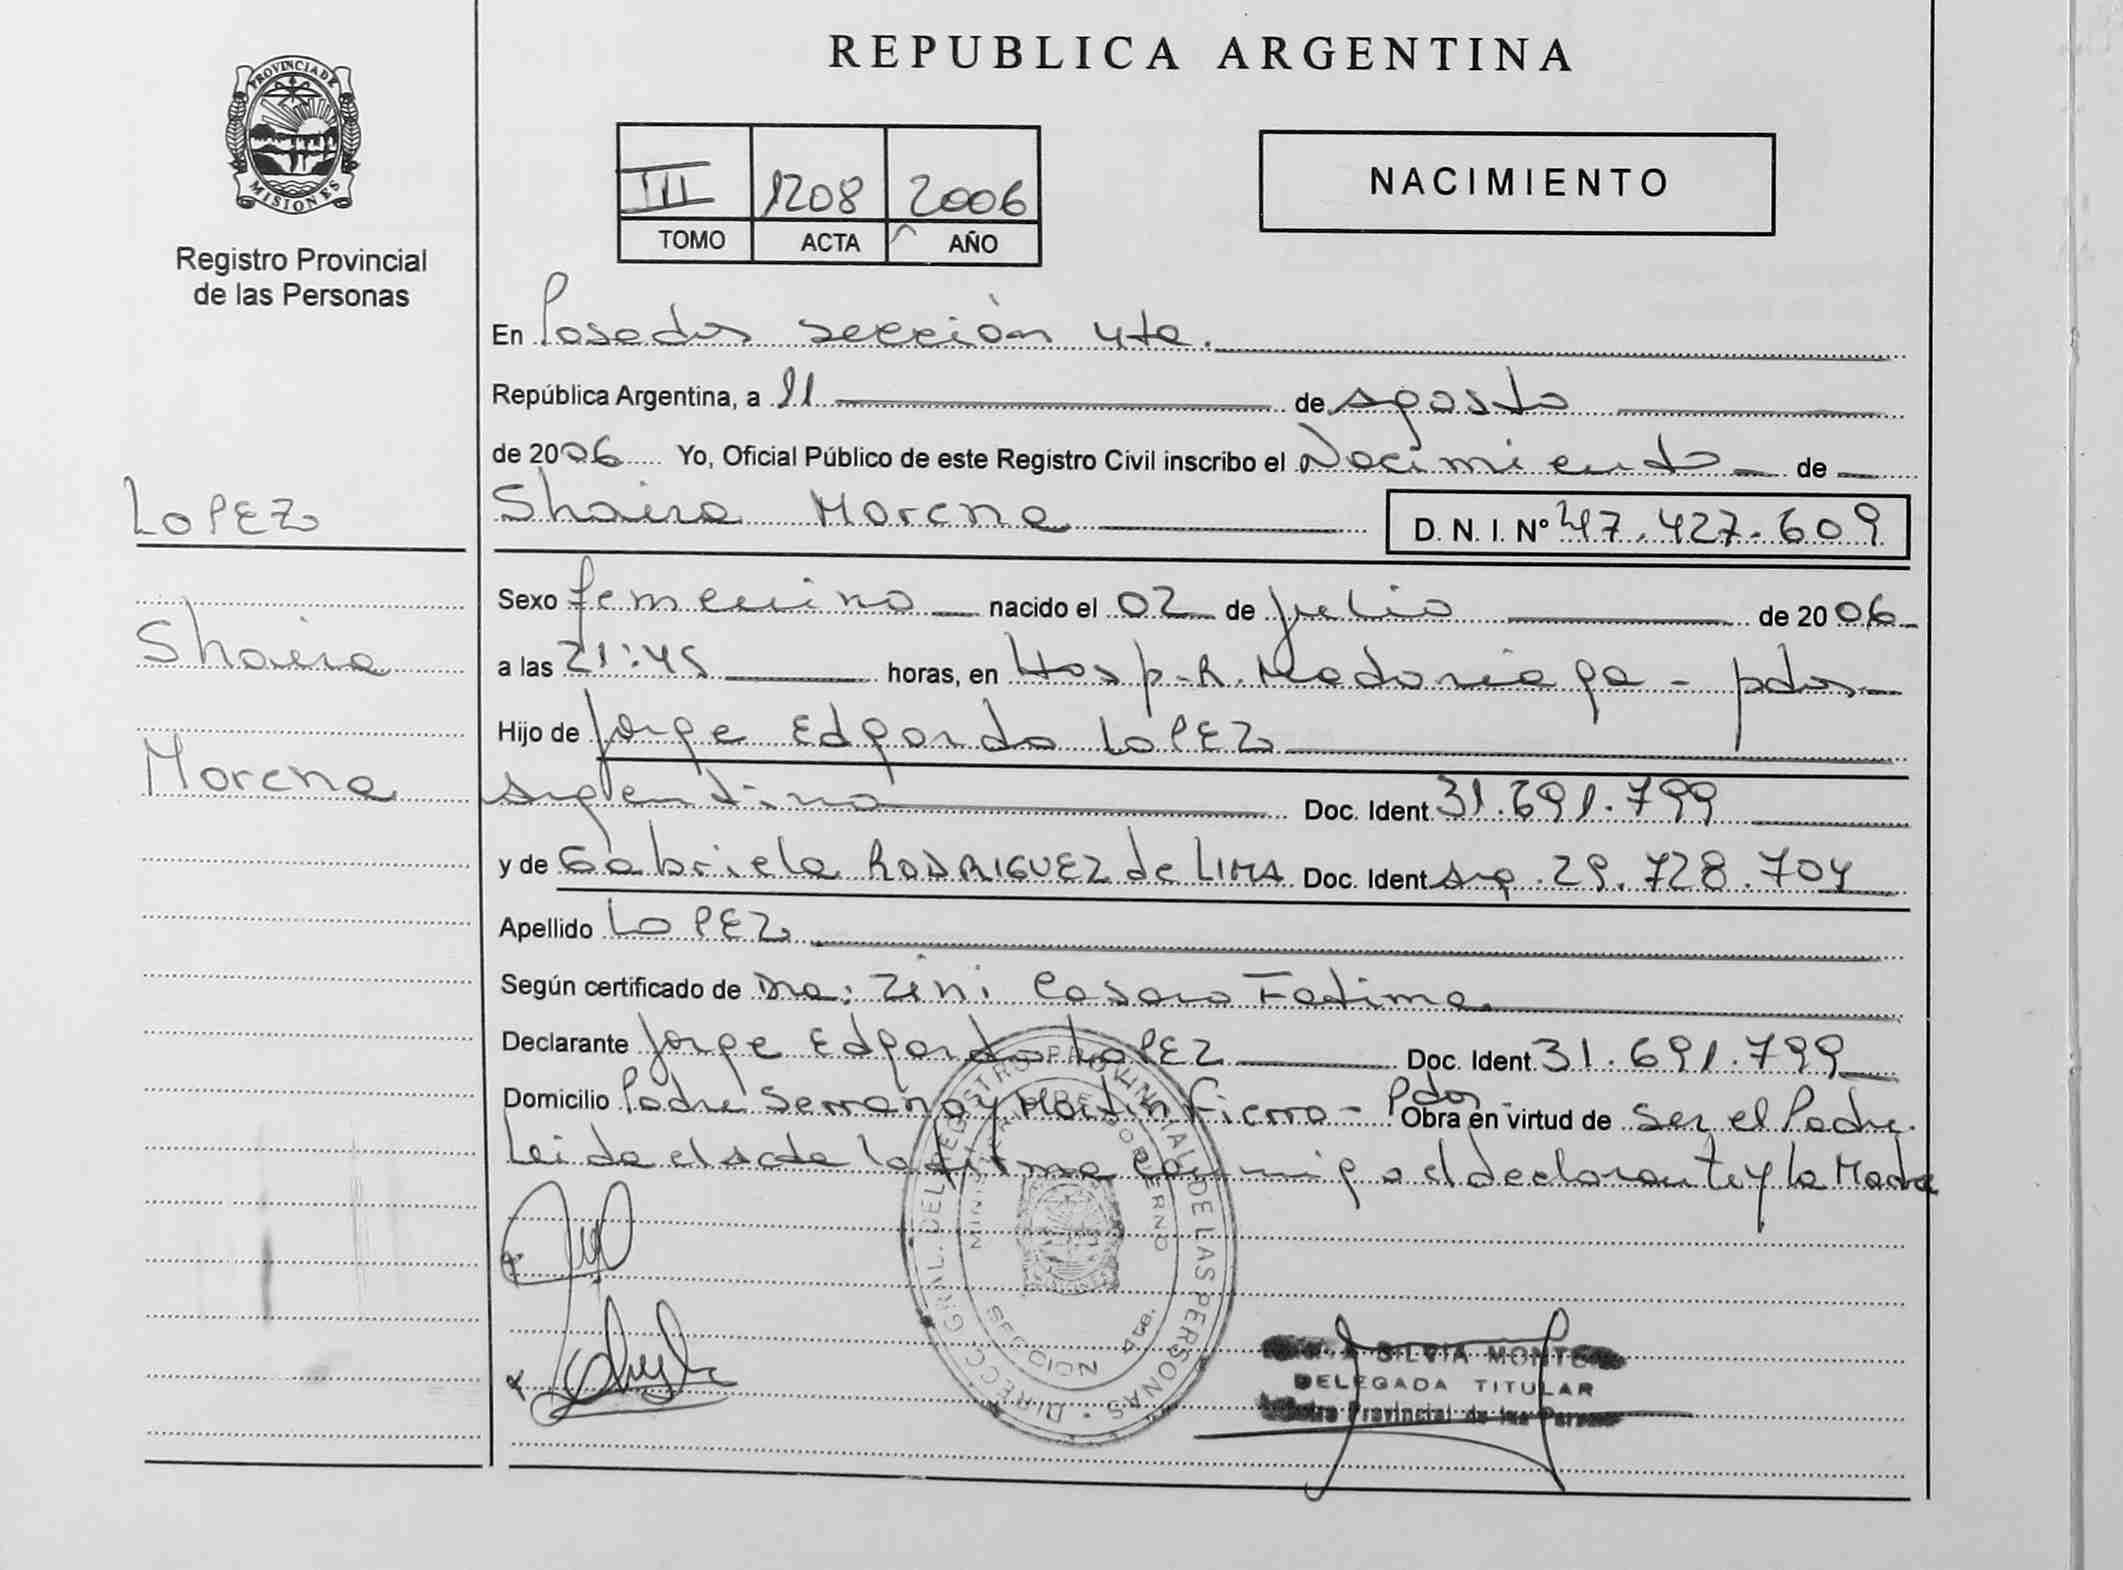 REPUBLICA ARGENTINA
PROVINCIA DE MISIONES
Registro Provincial
de las Personas
III 1208 2006
TOMO ACTA AÑO
NACIMIENTO
En Posadas sección 4ta.
República Argentina, a 11 de agosto
de 2006 Yo, Oficial Público de este Registro Civil inscribo el Nacimiento de
Shaira Morena D. N. I. Nº 47.427.609
LOPEZ
Shaira
Morena
Sexo femenino nacido el 02 de julio de 2006
a las 21:45 horas, en Hosp. R. Madariaga - pdas
Hijo de Jorge Edgardo LOPEZ
argentino Doc. Ident. 31.691.799
y de Gabriela RODRIGUEZ de LIMA Doc. Ident. arg. 29.728.704
Apellido LOPEZ
Según certificado de Dra: Zini Fatima
Declarante Jorge Edgardo LOPEZ Doc. Ident. 31.691.799
Domicilio Padre Serrano y Martin Fierro - Pdas Obra en virtud de ser el Padre.
Leida el acta la firma conmigo el declarante y la Madre
DIRECC. GRAL. DEL REGISTRO PROVINCIAL DE LAS PERSONAS
MINISTERIO DE GOBIERNO
SECCION 4ta.
SILVIA
DELEGADA TITULAR
Provincial de las